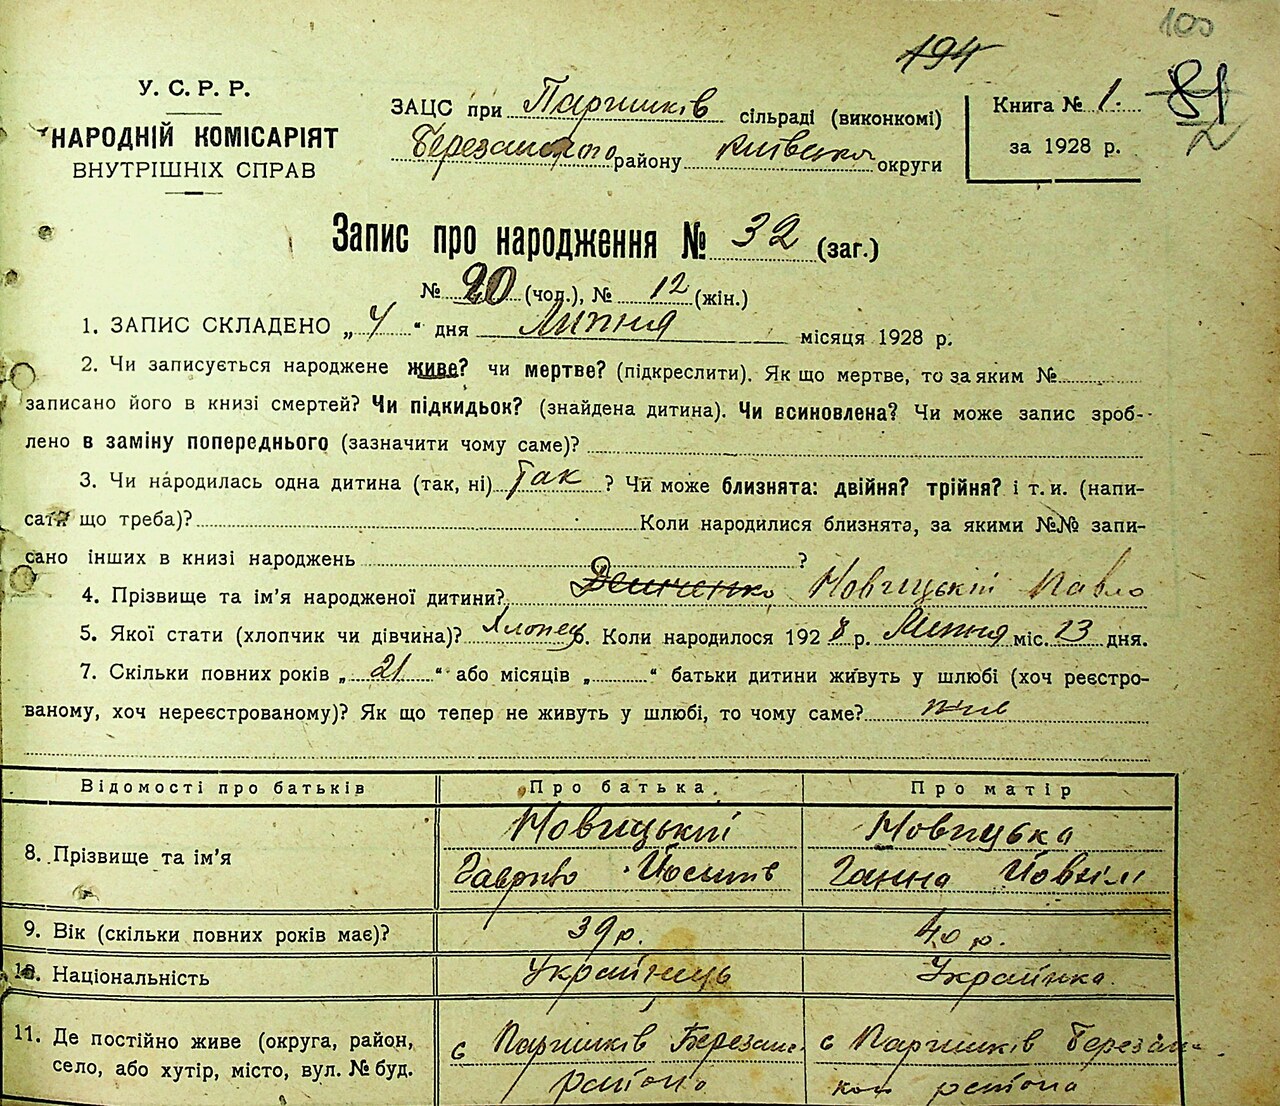 100
194
81
2
У. С. Р. Р.
НАРОДНІЙ КОМІСАРІЯТ
ВНУТРІШНІХ СПРАВ
ЗАЦС при Паришків сільраді (виконкомі)
Березанського району Київська округи
Книга № 1.
за 1928 р.
Запис про народження № 32 (заг.)
№ 20 (чол.), № 12 (жін.)
1. ЗАПИС СКЛАДЕНО „ 4 “ дня Липня місяця 1928 р.
2. Чи записується народжене живе? чи мертве? (підкреслити). Як що мертве, то за яким №
записано його в книзі смертей? Чи підкидьок? (знайдена дитина). Чи всиновлена? Чи може запис зроб-
лено в заміну попереднього (зазначити чому саме)?
3. Чи народилась одна дитина (так, ні) Так ? Чи може близнята: двійня? трійня? і т. и. (напи-
сати що треба)? Коли народилися близнята, за якими №№ запи-
сано інших в книзі народжень ?
4. Прізвище та ім’я народженої дитини? Демченко Новицький Павло
5. Якої стати (хлопчик чи дівчина)? Хлопец 6. Коли народилося 1928 р. Липня міс. 13 дня.
7. Скільки повних років „ 21 “ або місяців „ “ батьки дитини живуть у шлюбі (хоч реєстро-
ваному, хоч нереєстрованому)? Як що тепер не живуть у шлюбі, то чому саме?
Відомості про батьків Про батька Про матір
8. Прізвище та ім’я Новицький Новицька
Гаврило Йосипів Ганна
9. Вік (скільки повних років має)? 39 р. 40 р.
10. Національність Українець Українка
11. Де постійно живе (округа, район, с Паришків Березан. с Паришків Березан-
село, або хутір, місто, вул. № буд. района кого района